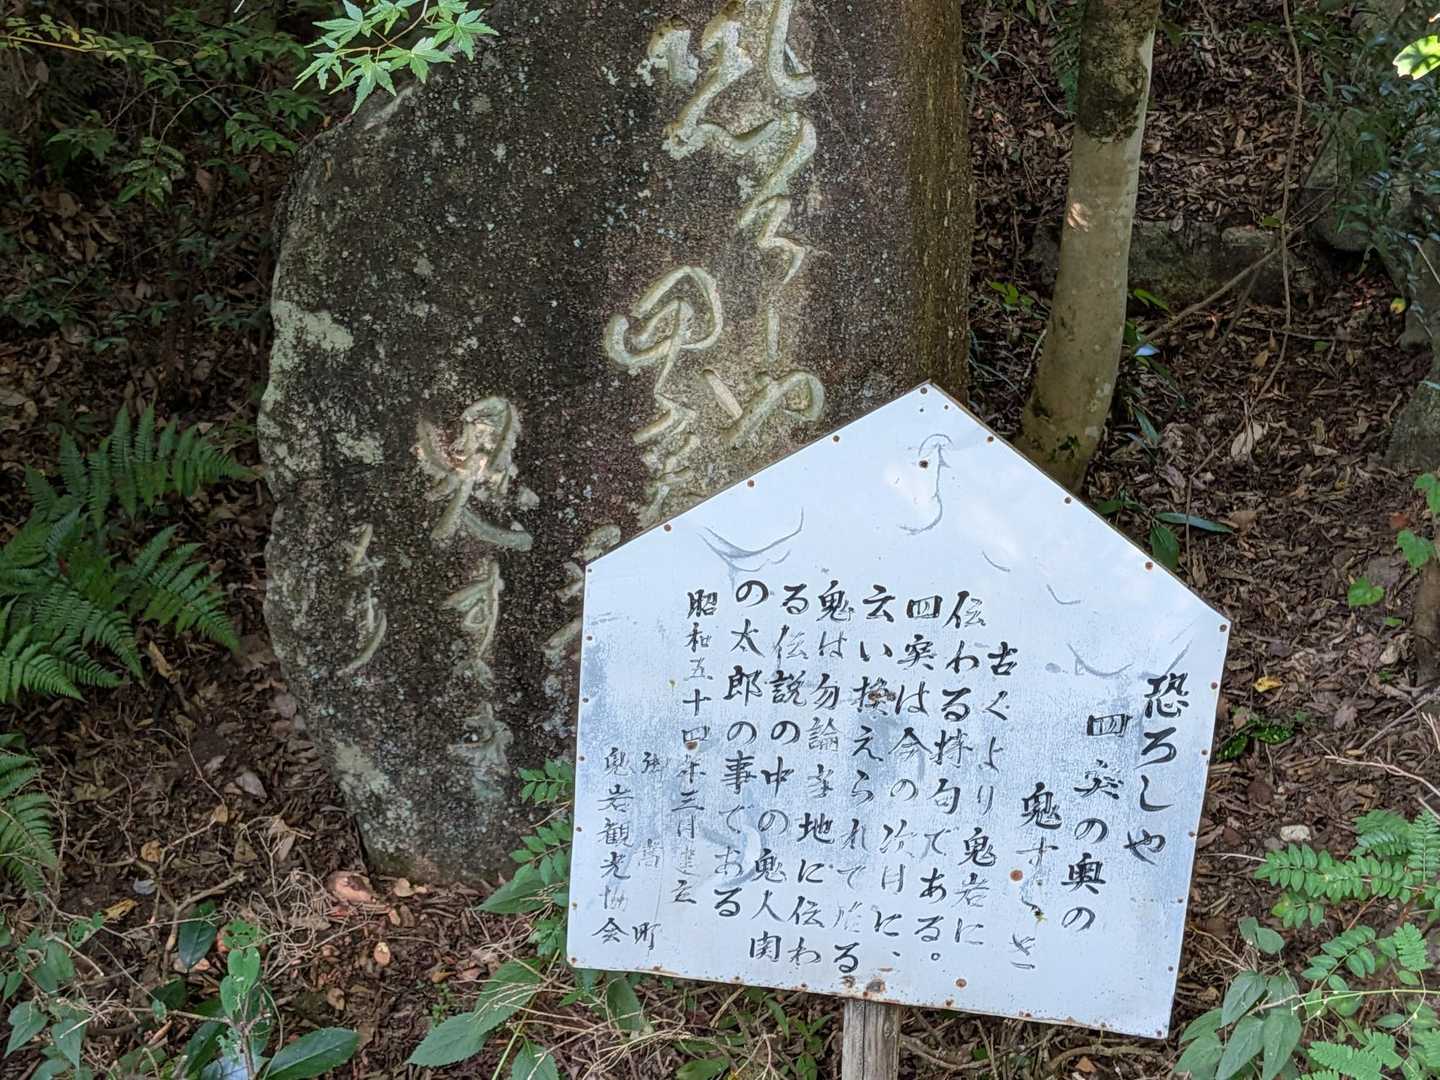 恐ろしや
恐ろしや
四実の奥の
鬼すゝき
古ぐより鬼岩に
伝わる持句である。
四実は今の次月に、
云い換えられて居る
鬼は勿論当地に伝わ
る伝説の中の鬼人関
の太郎の事である
昭和五十四年三月建立
御嵩町
鬼岩観光協会